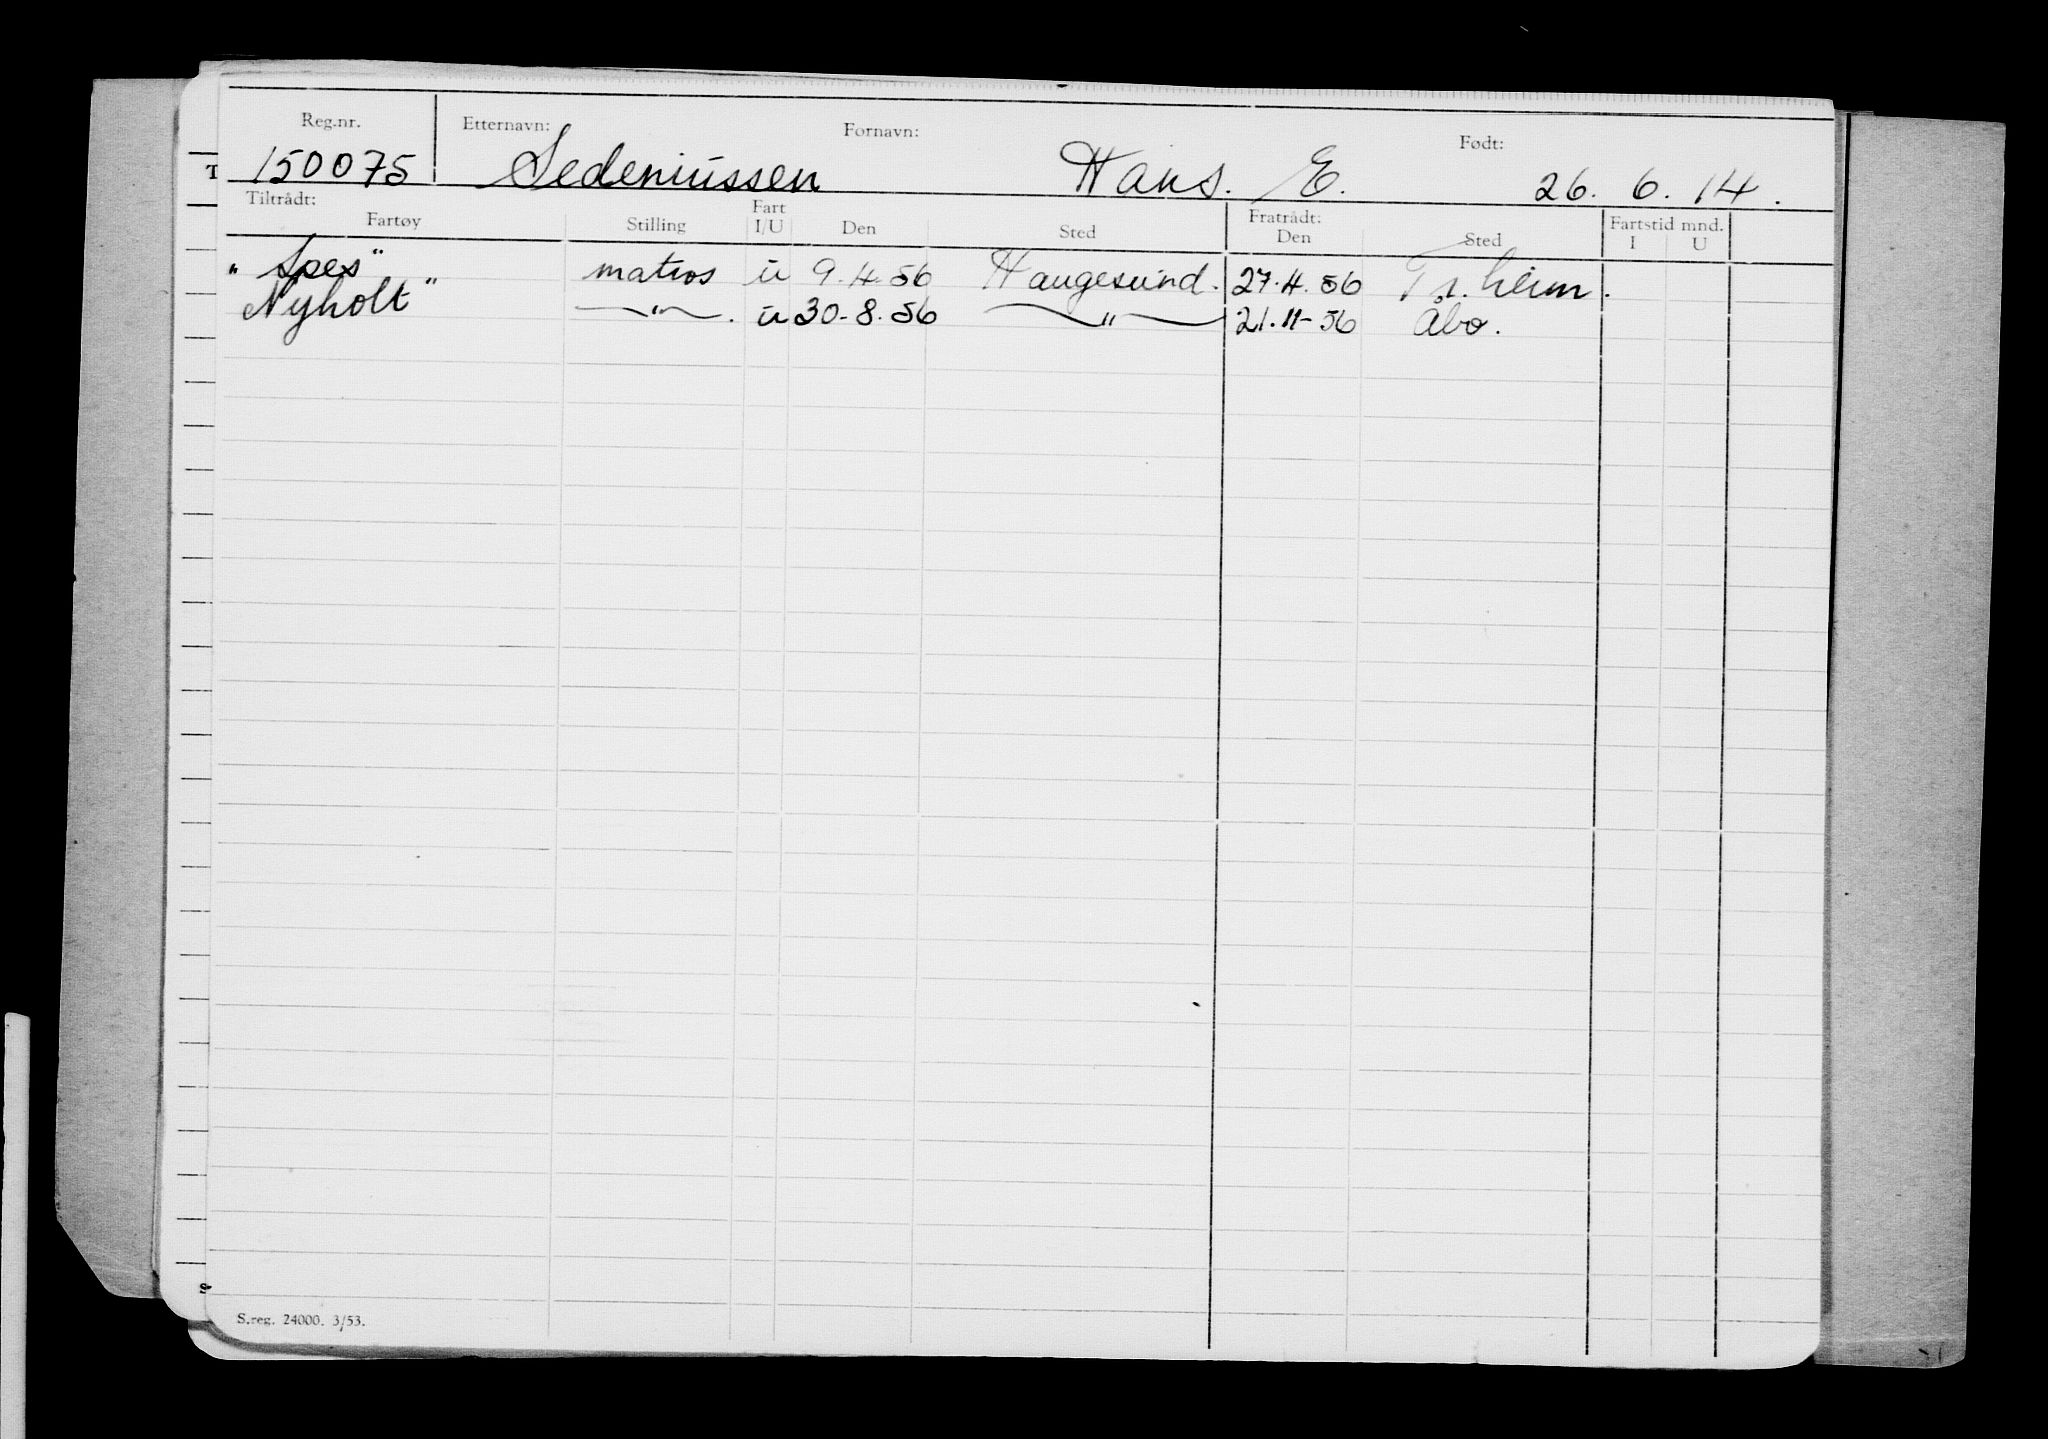 Reg.nr. Etternavn: Fornavn: Født:
150075 Sedeniussen Hans. E. 26. 6. 14.
Tiltrådt: Fratrådt:
Fartøy Stilling Fart I/U Den Sted Den Sted Fartstid mnd. I U
"Spes" matros u 9.4.56 Haugesund. 27.4.56 Tr.heim.
Nyholt" —"—. u 30-8.56 —"— 21.11-56 Åbo.
S.reg. 24000. 3/53.